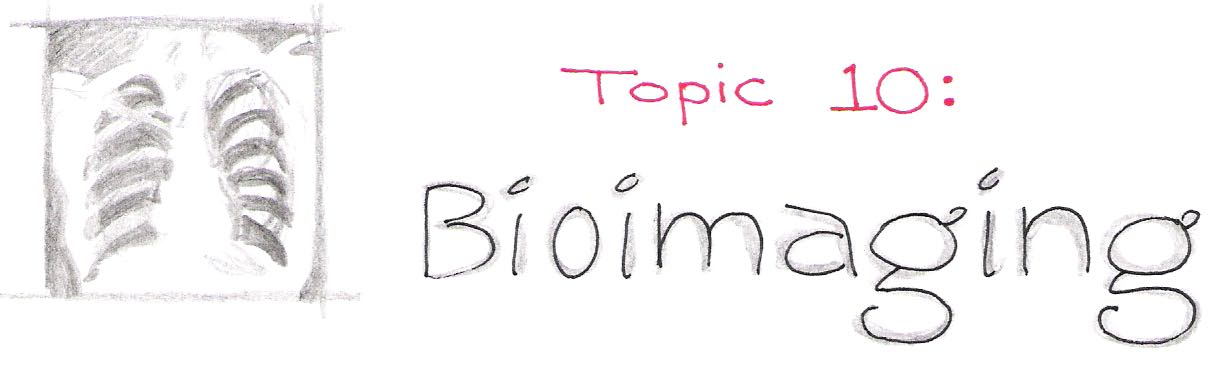 Topic 10:
Bioimaging